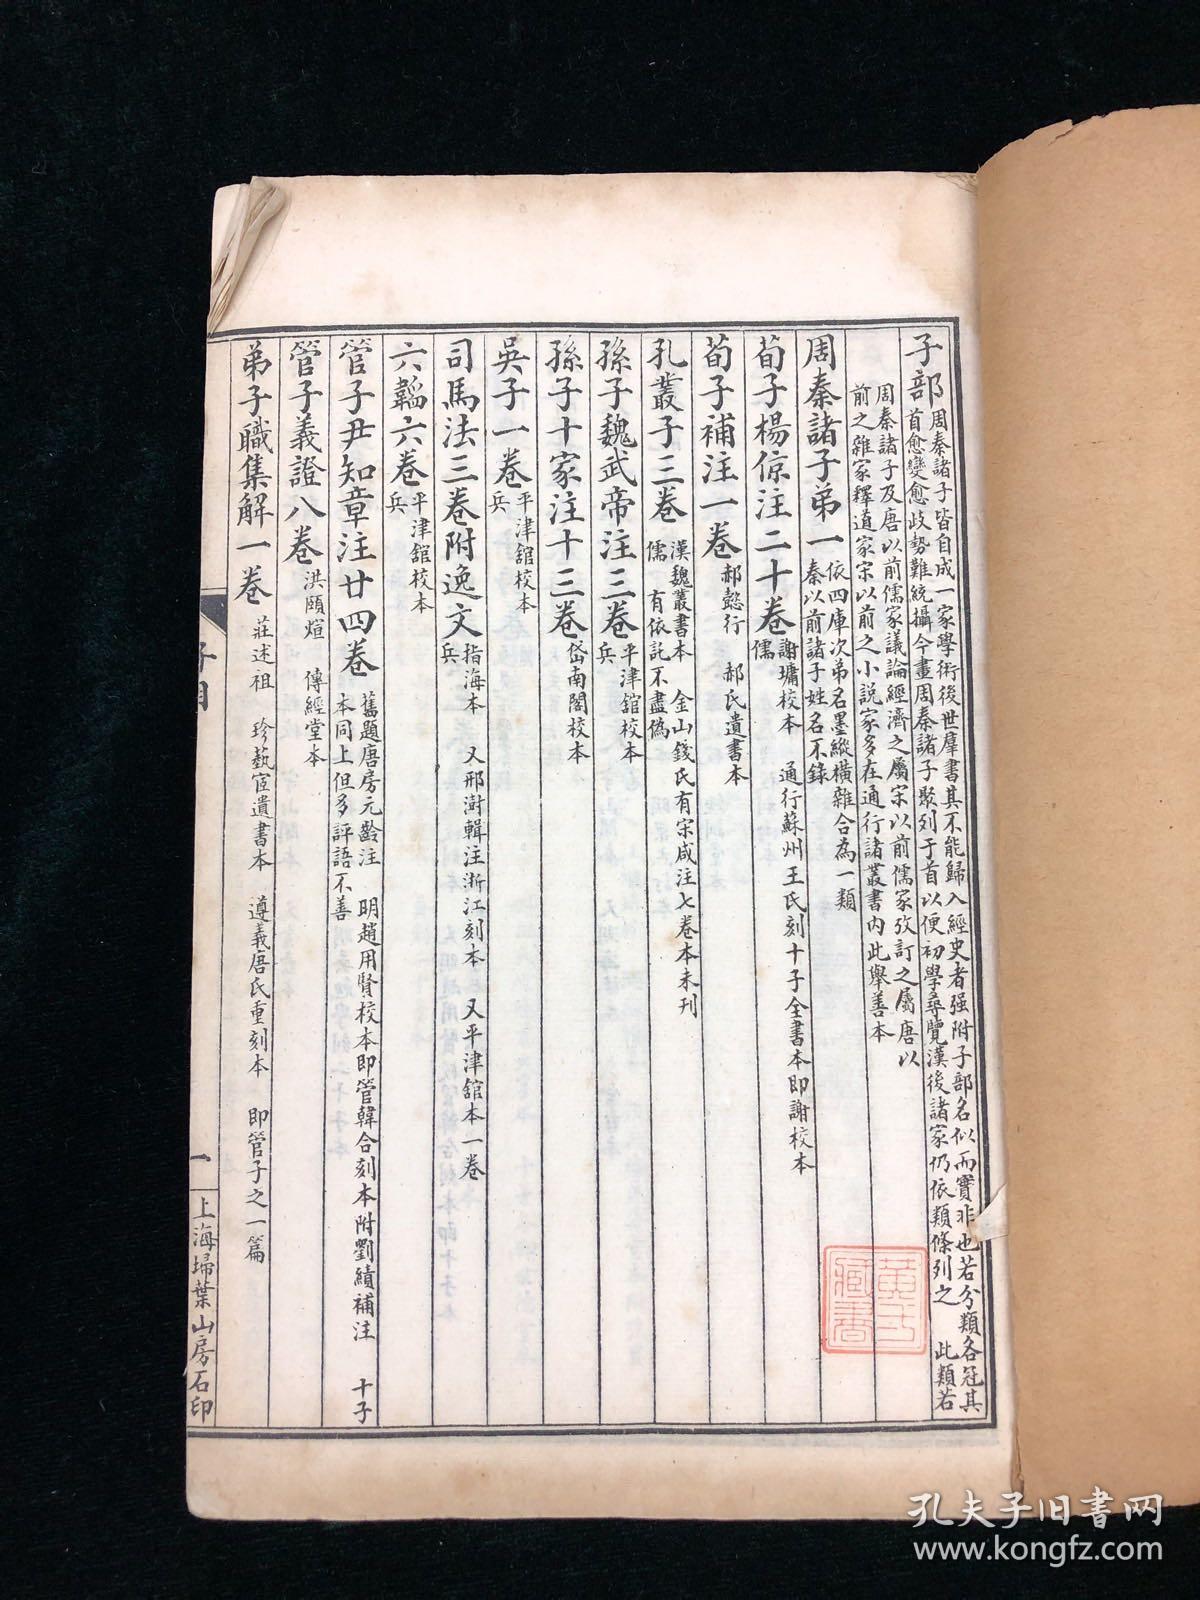 子部
周秦諸子皆自成一家學術後世羣書其不能歸入經史者强附子部名似而實非也若分類各冠其
首愈變愈歧勢難統攝今畫周秦諸子聚列于首以便初學尋覽漢後諸家仍依類條列之 此類若
周秦諸子及唐以前儒家議論經濟之屬宋以前儒家攷訂之屬唐以
前之雜家釋道家宋以前之小説家多在通行諸叢書内此舉善本
周秦諸子弟一
依四庫次弟名墨縱橫雜合為一類
秦以前諸子姓名不錄
荀子楊倞注二十卷
謝墉校本 通行蘇州王氏刻十子全書本即謝校本
儒
荀子補注一卷 郝懿行 郝氏遺書本
孔叢子三卷
漢魏叢書本 金山錢氏有宋咸注七卷本未刊
儒 有依託不盡偽
孫子魏武帝注三卷
平津舘校本
兵
孫子十家注十三卷 岱南閣校本
吳子一卷
平津舘校本
兵
司馬法三卷附逸文
指海本 又邢澍輯注浙江刻本 又平津舘本一卷
兵
六韜六卷
平津舘校本
兵
管子尹知章注廿四卷
舊題唐房元齡注 明趙用賢校本即管韓合刻本附劉績補注 十子
本同上但多評語不善
管子義證八卷 洪頤煊 傳經堂本
弟子職集解一卷 莊述祖 珍藝宦遺書本 遵義唐氏重刻本 即管子之一篇
子目
一
上海埽葉山房石印
孔夫子旧书网
www.kongfz.com